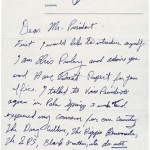 Dear Mr. President
First I would like to introduce myself.
I am Elvis Presley and admire you
and Have Great Respect for your
office. I talked to Vice President
Agnew in Palm Springs 3 weeks ago and
expressed my concern for our country.
The Drug Culture, The Hippie Elements,
The SDS, Black Panthers, etc do not